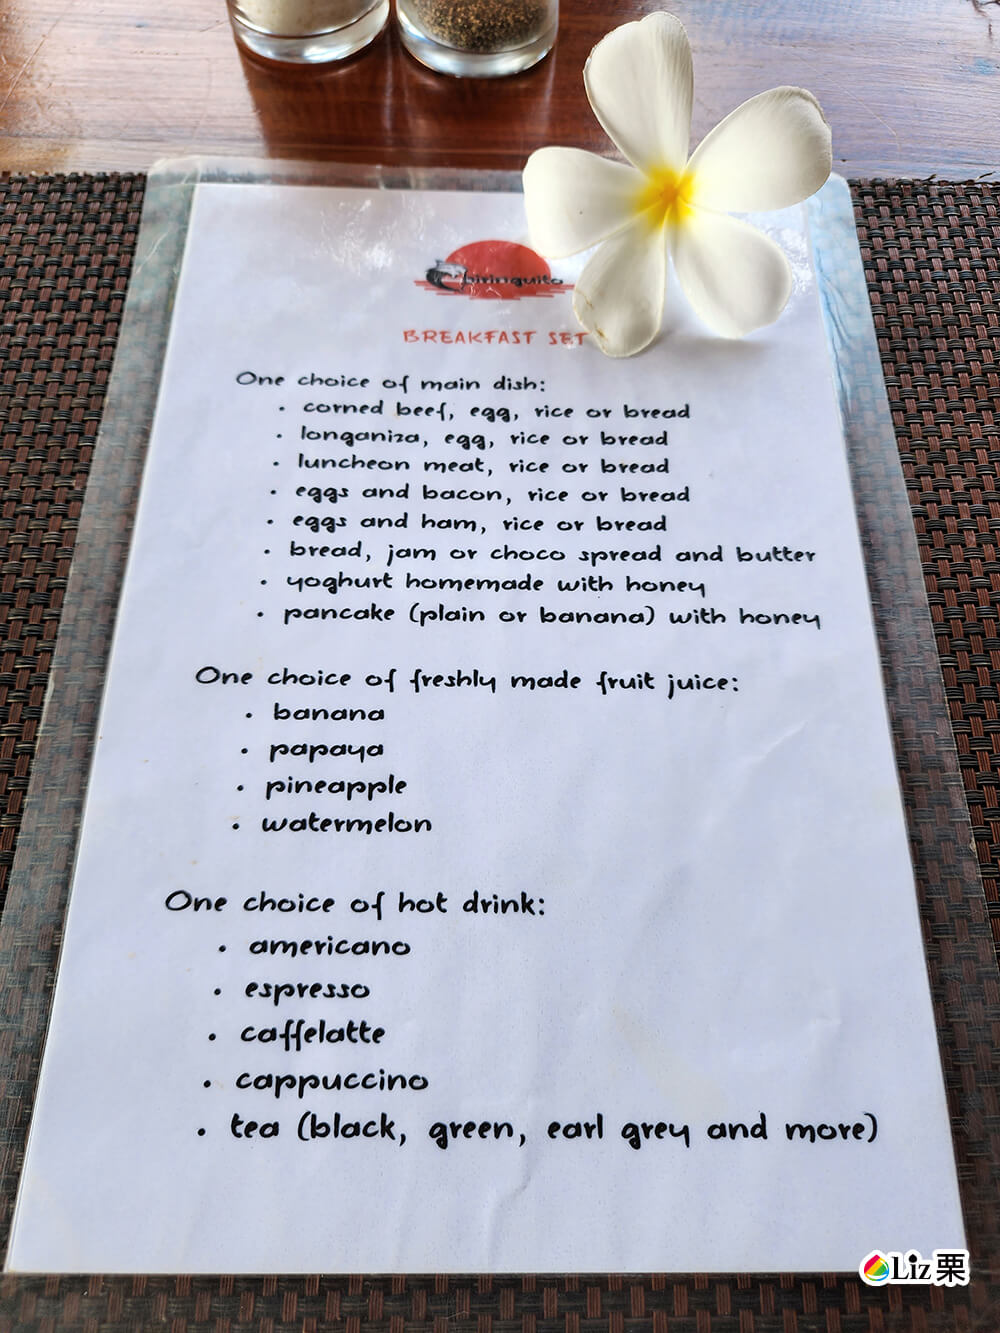 Chiringuito
BREAKFAST SET
One choice of main dish:
• corned beef, egg, rice or bread
• longaniza, egg, rice or bread
• luncheon meat, rice or bread
• eggs and bacon, rice or bread
• eggs and ham, rice or bread
• bread, jam or choco spread and butter
• yoghurt homemade with honey
• pancake (plain or banana) with honey
One choice of freshly made fruit juice:
• banana
• papaya
• pineapple
• watermelon
One choice of hot drink:
• americano
• espresso
• caffelatte
• cappuccino
• tea (black, green, earl grey and more)
Liz栗